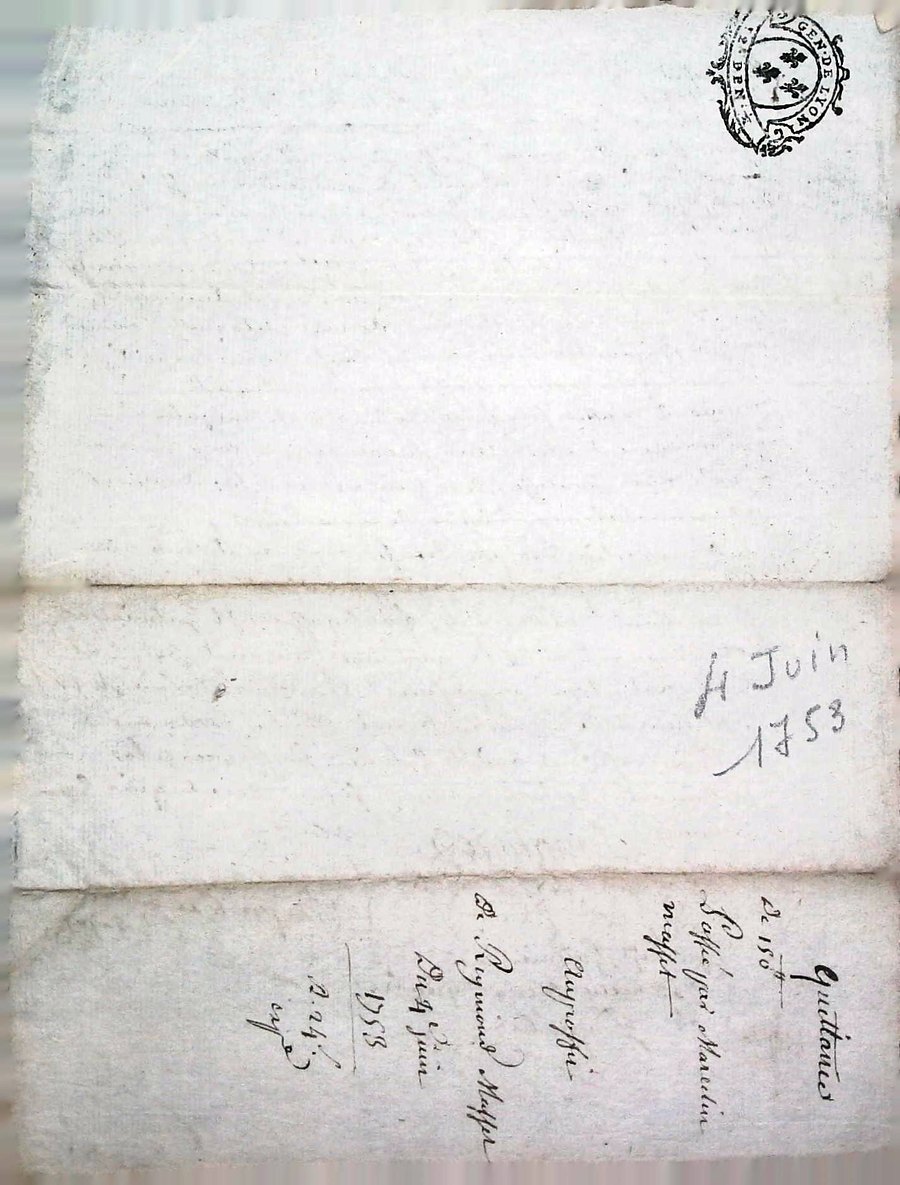 GEN·DE LYON
4 Juin
1753
Quittance
De 150 ᵗᵗ
Passé par Marcelin
maffet
Au proffit
De Reymond Maffet
Du 4 Juin
1753